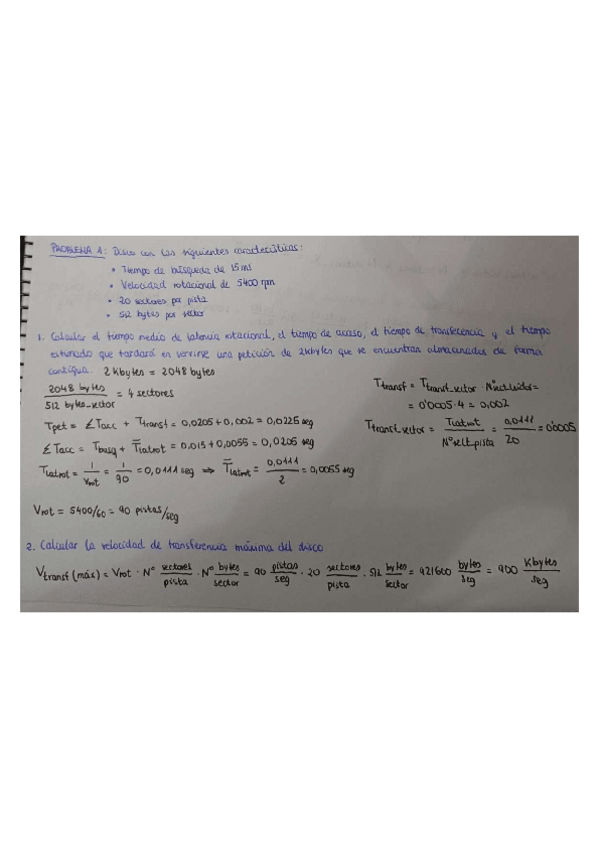 PROBLEMA 1: Disco con las siguientes características:
• Tiempo de búsqueda de 15 ms
• Velocidad rotacional de 5400 rpm
• 20 sectores por pista
• 512 bytes por sector
1. Calcular el tiempo medio de latencia rotacional, el tiempo de acceso, el tiempo de transferencia y el tiempo
estimado que tardará en servirse una petición de 2kbytes que se encuentran almacenados de forma
contigua. 2 Kbytes = 2048 bytes
2048 bytes / 512 bytes_sector = 4 sectores
Ttransf = Ttransf_sector · Nºsect.leidos =
= 0'0005·4 = 0,002
Tpet = ΣTacc + Ttransf = 0,0205 + 0,002 = 0,0225 seg
Ttransf_sector = Tlatrot / Nºsect_pista = 0,0111 / 20 = 0'0005
ΣTacc = Tbusq + T̄latrot = 0,015 + 0,0055 = 0,0205 seg
Tlatrot = 1 / Vrot = 1 / 90 = 0,0111 seg ⇒ T̄latrot = 0,0111 / 2 = 0,0055 seg
Vrot = 5400/60 = 90 pistas/seg
2. Calcular la velocidad de transferencia máxima del disco
Vtransf (máx) = Vrot · Nº sectores/pista · Nº bytes/sector = 90 pistas/seg · 20 sectores/pista · 512 bytes/sector = 921600 bytes/seg = 900 Kbytes/seg